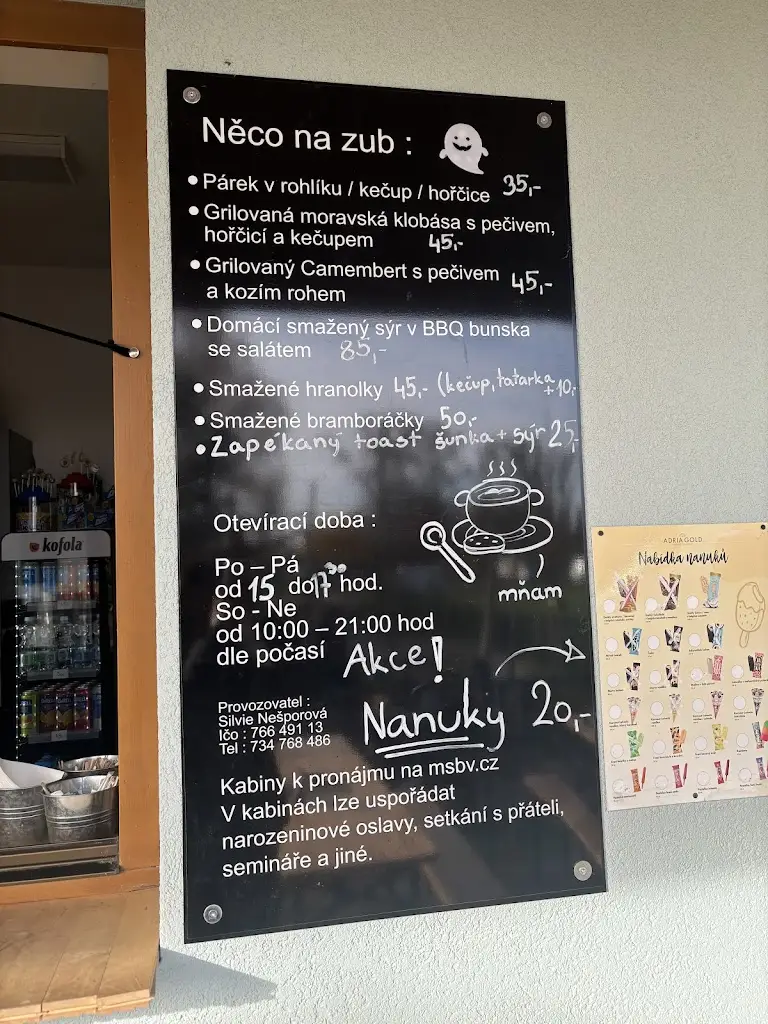 Něco na zub :
• Párek v rohlíku / kečup / hořčice 35,-
• Grilovaná moravská klobása s pečivem,
hořčicí a kečupem 45,-
• Grilovaný Camembert s pečivem 45,-
a kozím rohem
• Domácí smažený sýr v BBQ bunska
se salátem 85,-
• Smažené hranolky 45,- (kečup, tatarka + 10,-
• Smažené bramboráčky 50,-
• Zapékaný toast šunka + sýr 25,-
Otevírací doba :
Po – Pá
od 15 do 17³⁰ hod.
So - Ne
od 10:00 – 21:00 hod
dle počasí
mňam
Akce!
Nanuky 20,-
Provozovatel :
Silvie Nešporová
Ičo : 766 491 13
Tel : 734 768 486
Kabiny k pronájmu na msbv.cz
V kabinách lze uspořádat
narozeninové oslavy, setkání s přáteli,
semináře a jiné.
kofola
ADRIA GOLD
Nabídka nanuků